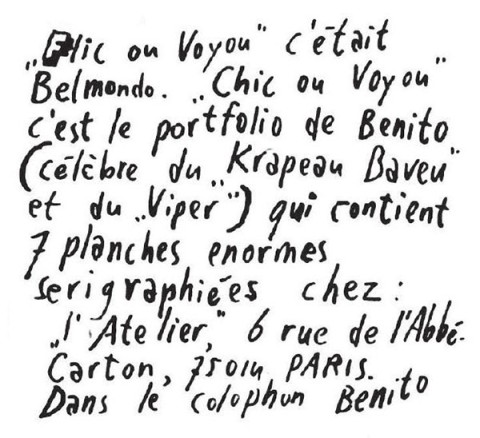 „Flic ou Voyou" c'était
Belmondo. „Chic ou Voyou"
c'est le portfolio de Benito
(célèbre du „Krapeau Baveu"
et du „Viper") qui contient
7 planches enormes
serigraphiées chez:
„l'Atelier," 6 rue de l'Abbé-
Carton, 75014 PARIS.
Dans le colophon Benito